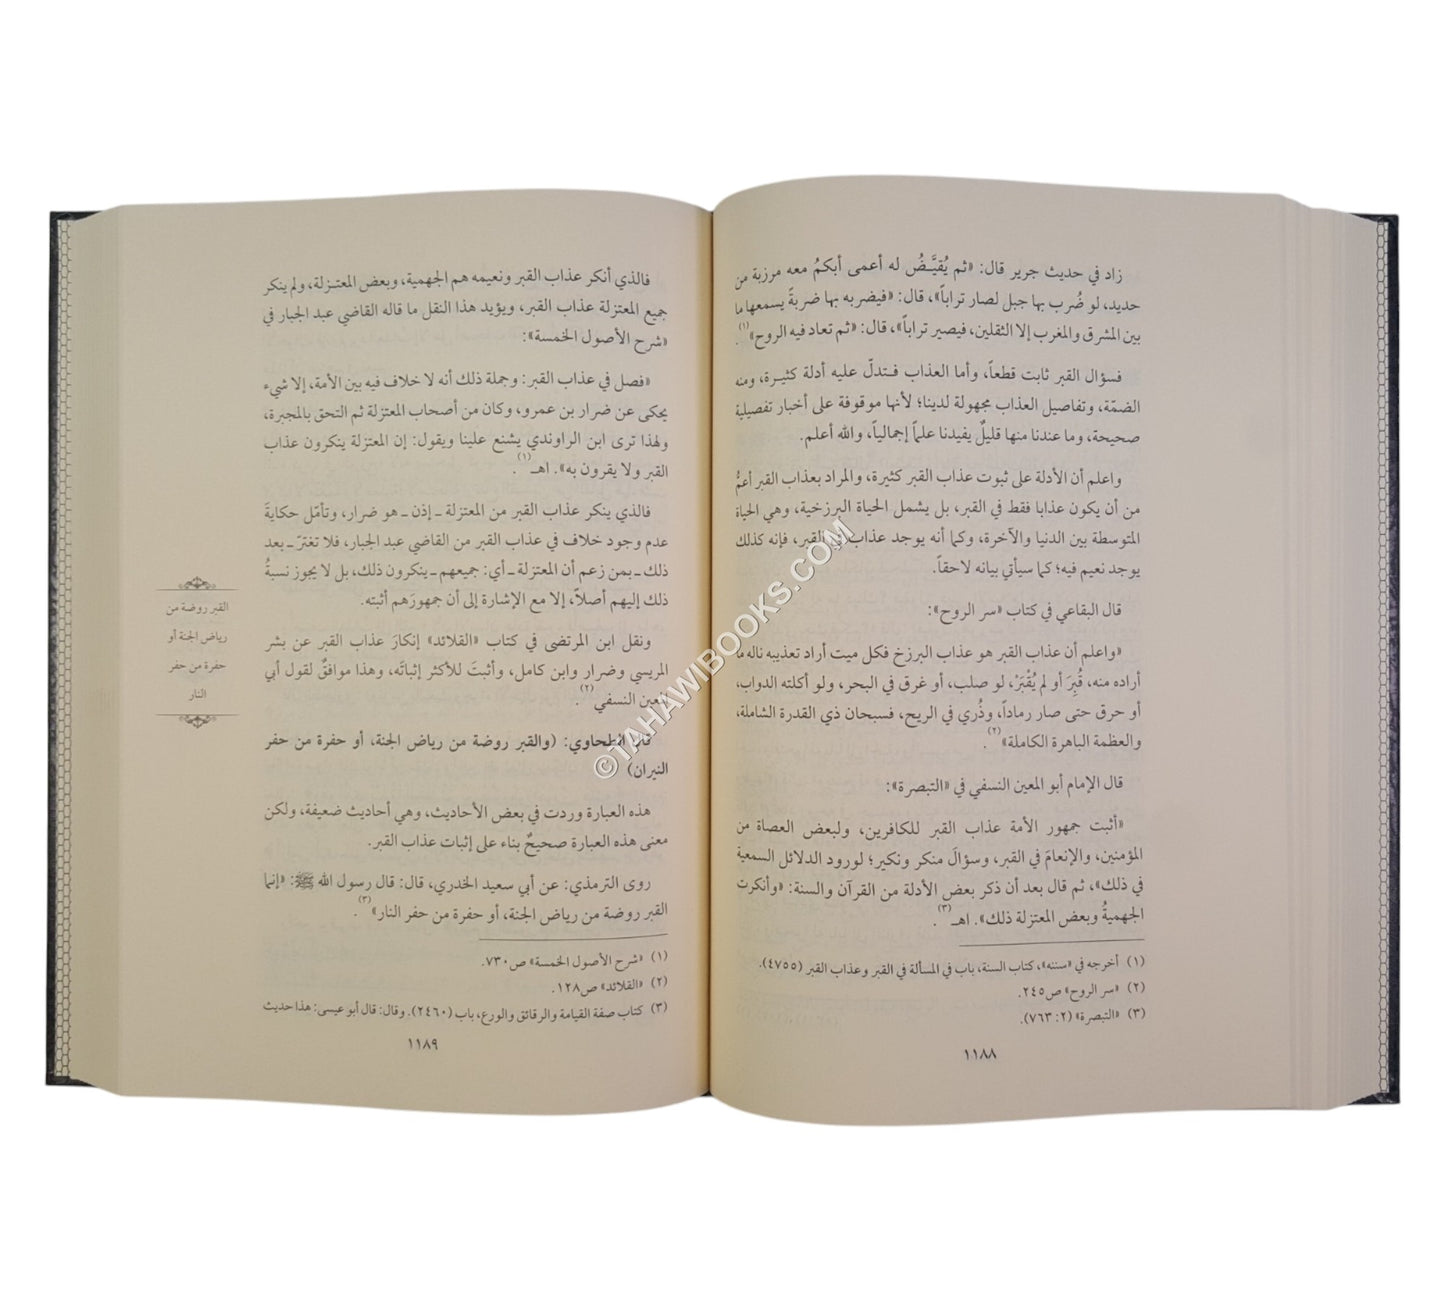 زاد في حديث جرير قال: «ثم يُقيَّضُ له أعمى أبكمُ معه مرزبة من
حديد، لو ضُرب بها جبل لصار تراباً»، قال: «فيضربه بها ضربةً يسمعها ما
بين المشرق والمغرب إلا الثقلين، فيصير تراباً»، قال: «ثم تعاد فيه الروح»(١).
فسؤال القبر ثابت قطعاً، وأما العذاب فتدلّ عليه أدلة كثيرة، ومنه
الضمّة، وتفاصيل العذاب مجهولة لدينا؛ لأنها موقوفة على أخبار تفصيلية
صحيحة، وما عندنا منها قليلٌ يفيدنا علماً إجمالياً، والله أعلم.
واعلم أن الأدلة على ثبوت عذاب القبر كثيرة، والمراد بعذاب القبر أعمُّ
من أن يكون عذابا فقط في القبر، بل يشمل الحياة البرزخية، وهي الحياة
المتوسطة بين الدنيا والآخرة، وكما أنه يوجد عذاب في القبر، فإنه كذلك
يوجد نعيم فيه؛ كما سيأتي بيانه لاحقاً.
قال البقاعي في كتاب «سر الروح»:
«واعلم أن عذاب القبر هو عذاب البرزخ فكل ميت أراد تعذيبه ناله ما
أراده منه، قُبِرَ أو لم يُقْبَرْ، لو صلب، أو غرق في البحر، ولو أكلته الدواب،
أو حرق حتى صار رماداً، وذُري في الريح، فسبحان ذي القدرة الشاملة،
والعظمة الباهرة الكاملة»(٢).
قال الإمام أبو المعين النسفي في «التبصرة»:
«أثبت جمهور الأمة عذاب القبر للكافرين، ولبعض العصاة من
المؤمنين، والإنعامَ في القبر، وسؤالَ منكر ونكير؛ لورود الدلائل السمعية
في ذلك»، ثم قال بعد أن ذكر بعض الأدلة من القرآن والسنة: «وأنكرت
الجهميةُ وبعض المعتزلة ذلك». اهـ(٣).
(١) أخرجه في «سننه»، كتاب السنة، باب في المسألة في القبر وعذاب القبر (٤٧٥٥).
(٢) «سر الروح» ص٢٤٥.
(٣) «التبصرة» (٢: ٧٦٣).
١١٨٨
فالذي أنكر عذاب القبر ونعيمه هم الجهمية، وبعض المعتزلة، ولم ينكر
جميع المعتزلة عذاب القبر، ويؤيد هذا النقل ما قاله القاضي عبد الجبار في
«شرح الأصول الخمسة»:
«فصل في عذاب القبر: وجملة ذلك أنه لا خلاف فيه بين الأمة، إلا شيء
يحكى عن ضرار بن عمرو، وكان من أصحاب المعتزلة ثم التحق بالمجبرة،
ولهذا ترى ابن الراوندي يشنع علينا ويقول: إن المعتزلة ينكرون عذاب
القبر ولا يقرون به». اهـ(١).
فالذي ينكر عذاب القبر من المعتزلة ـ إذن ـ هو ضرار، وتأمّل حكايةَ
عدم وجود خلاف في عذاب القبر من القاضي عبد الجبار، فلا تغترّ ـ بعد
ذلك ـ بمن زعم أن المعتزلة ـ أي: جميعهم ـ ينكرون ذلك، بل لا يجوز نسبةُ
ذلك إليهم أصلاً، إلا مع الإشارة إلى أن جمهورَهم أثبته.
ونقل ابن المرتضى في كتاب «القلائد» إنكارَ عذاب القبر عن بشر
المريسي وضرار وابن كامل، وأثبتَ للأكثر إثباتَه، وهذا موافقٌ لقول أبي
المعين النسفي(٢).
قال الطحاوي: (والقبر روضة من رياض الجنة، أو حفرة من حفر
النيران)
هذه العبارة وردت في بعض الأحاديث، وهي أحاديث ضعيفة، ولكن
معنى هذه العبارة صحيحٌ بناء على إثبات عذاب القبر.
روى الترمذي: عن أبي سعيد الخدري، قال: قال رسول الله ﷺ: «إنما
القبر روضة من رياض الجنة، أو حفرة من حفر النار»(٣).
القبر روضة من
رياض الجنة أو
حفرة من حفر
النار
(١) «شرح الأصول الخمسة» ص٧٣٠.
(٢) «القلائد» ص١٢٨.
(٣) كتاب صفة القيامة والرقائق والورع، باب (٢٤٦٠). وقال: قال أبو عيسى: هذا حديث
١١٨٩
©TAHAWIBOOKS.COM